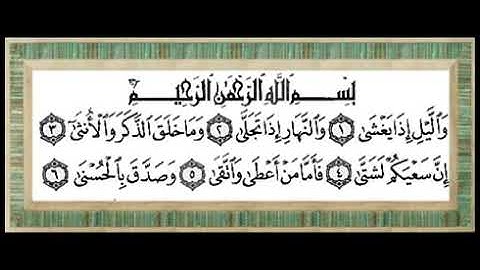 بِسْمِ ٱللَّهِ ٱلرَّحْمَٰنِ ٱلرَّحِيمِ
وَٱلَّيْلِ إِذَا يَغْشَىٰ ١ وَٱلنَّهَارِ إِذَا تَجَلَّىٰ ٢ وَمَا خَلَقَ ٱلذَّكَرَ وَٱلْأُنثَىٰٓ ٣
إِنَّ سَعْيَكُمْ لَشَتَّىٰ ٤ فَأَمَّا مَنْ أَعْطَىٰ وَٱتَّقَىٰ ٥ وَصَدَّقَ بِٱلْحُسْنَىٰ ٦